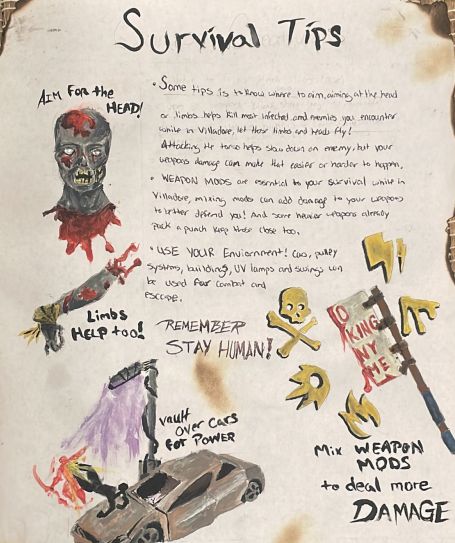 Survival Tips
AIM FOR the
HEAD!
• Some tips is to know where to aim, aiming at the head
or limbs helps kill most infected and enemies you encounter
while in Villadore, let those limbs and heads fly!
Attacking the torso helps slow down an enemy, but your
weapons damage can make that easier or harder to happen.
• WEAPON MODS are essential to your survival while in
Villadore, mixing mods can add damage to your weapons
to better defend you! And some heavier weapons already
pack a punch keep those close too.
• USE YOUR Enviornment! Cars, pulley
systems, buildings, UV lamps and swings can
be used for combat and
escape.
Limbs
HELP too!
REMEMBER
STAY HUMAN!
KING
NY
ME
vault
over cars
FOR POWER
Mix WEAPON
MODS
to deal more
DAMAGE